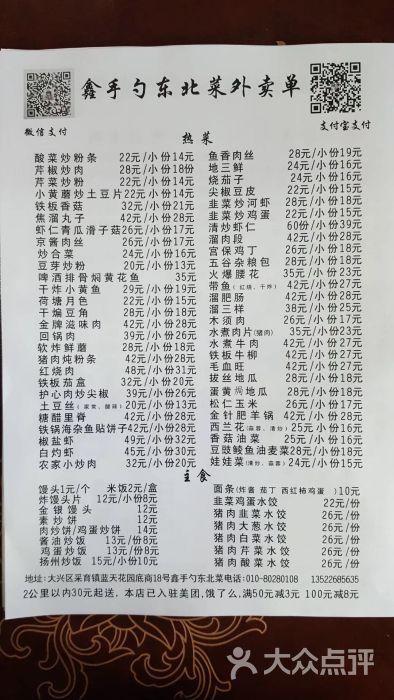 鑫手勺东北菜外卖单
微信支付
支付宝支付
热菜
酸菜炒粉条 22元/小份14元
芹椒炒肉 28元/小份18份
芹菜炒粉 22元/小份14元
小黄蘑炒土豆片22元/小份14元
铁板香菇 32元/小份21元
焦溜丸子 42元/小份28元
虾仁青瓜滑子菇26元/小份17元
京酱肉丝 26元/小份17元
炒合菜 24元/小份16元
豆芽炒粉 20元/小份13元
啤酒排骨焖黄花鱼 35元
干炸小黄鱼 29元/小份19元
荷塘月色 22元/小份15元
干煸豆角 28元/小份18元
金牌滋味肉 42元/小份28元
回锅肉 39元/小份26元
软炸鲜蘑 28元/小份18元
猪肉炖粉条 42元/小份28元
红烧肉 48元/小份31元
铁板茄盒 32元/小份20元
护心肉炒尖椒 39元/小份26元
土豆丝(家常、醋辣)20元/小份13元
糖醋里脊 42元/小份28元
铁锅海杂鱼贴饼子42元/小份28元
椒盐虾 49元/小份32元
白灼虾 45元/小份30元
农家小炒肉 32元/小份20元
鱼香肉丝 28元/小份19元
地三鲜 24元/小份16元
烧茄子 24元/小份16元
尖椒豆皮 22元/小份15元
韭菜炒河虾 28元/小份18元
韭菜炒鸡蛋 22元/小份15元
清炒虾仁 60份/小份39元
溜肉段 42元/小份28元
宫保鸡丁 26元/小份18元
五谷杂粮包 28元/小份18元
火爆腰花 35元/小份23元
带鱼(红烧、干炸) 42元/小份27元
溜肥肠 42元/小份28元
溜三样 38元/小份25元
木须肉 26元/小份17元
水煮肉片(猪肉) 35元/小份23元
水煮牛肉 42元/小份27元
铁板牛柳 42元/小份27元
毛血旺 42元/小份27元
拔丝地瓜 28元/小份18元
蛋黄焗地瓜 28元/小份18元
松仁玉米 26元/小份17元
金针肥羊锅 42元/小份28元
西兰花(蒜蓉、清炒) 25元 小份16元
香菇油菜 25元/小份16元
豆豉鲮鱼油麦菜 28元/小份18元
娃娃菜(清炒、蒜蓉) 24元/小份15元
主食
馒头1元/个 米饭2元/盒
炸馒头片 12元/小份8元
金银馒头 12元
素炒饼 12元
肉炒饼/鸡蛋炒饼 14元
酱油炒饭 13元/份8元
鸡蛋炒饭 13元/小份8元
扬州炒饭 15元/小份10元
面条(炸酱 茄丁 西红柿鸡蛋 )10元
韭菜鸡蛋水饺 22元/份
猪肉韭菜水饺 26元/份
猪肉大葱水饺 26元/份
猪肉白菜水饺 26元/份
猪肉芹菜水饺 26元/份
猪肉酸菜水饺 26元/份
地址:大兴区采育镇蓝天花园底商18号鑫手勺东北菜电话:010-80280108 13522685635
2公里以内30元起送,本店已入驻美团,饿了么,满50元减3元 100元减8元
大众点评